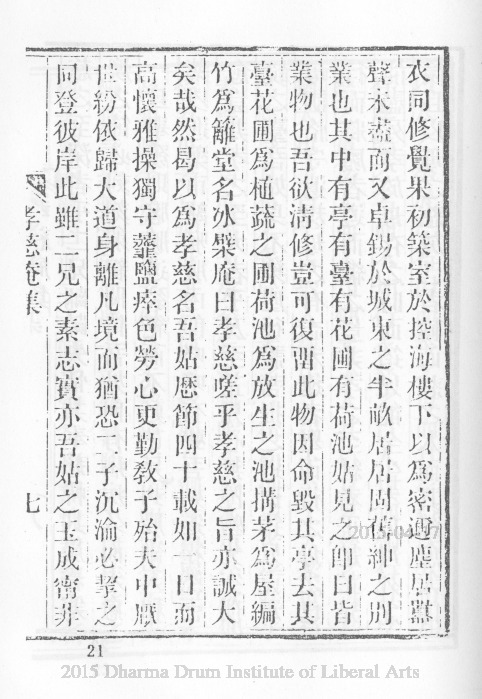 衣同修覺果初築室於控海樓下以為密邇塵居囂
聲未盡而又卓錫於城東之半畝居居固舊紳之別
業也其中有亭有臺有花圃有荷池姑見之即曰皆
業物也吾欲清修豈可復畱此物因命毀其亭去其
臺花圃為植蔬之圃荷池為放生之池搆茅為屋編
竹為籬堂名氷櫱庵曰孝慈嗟乎孝慈之旨亦誠大
矣哉然曷以為孝慈名吾姑歷節四十載如一日而
高懷雅操獨守虀鹽瘁色勞心更勤敎子殆夫中厭
世紛依歸大道身離凡境而猶恐二子沉淪必挈之
同登彼岸此雖二兄之素志實亦吾姑之玉成甯非
孝慈庵集
七
21
2015-04-07
2015 Dharma Drum Institute of Liberal Arts